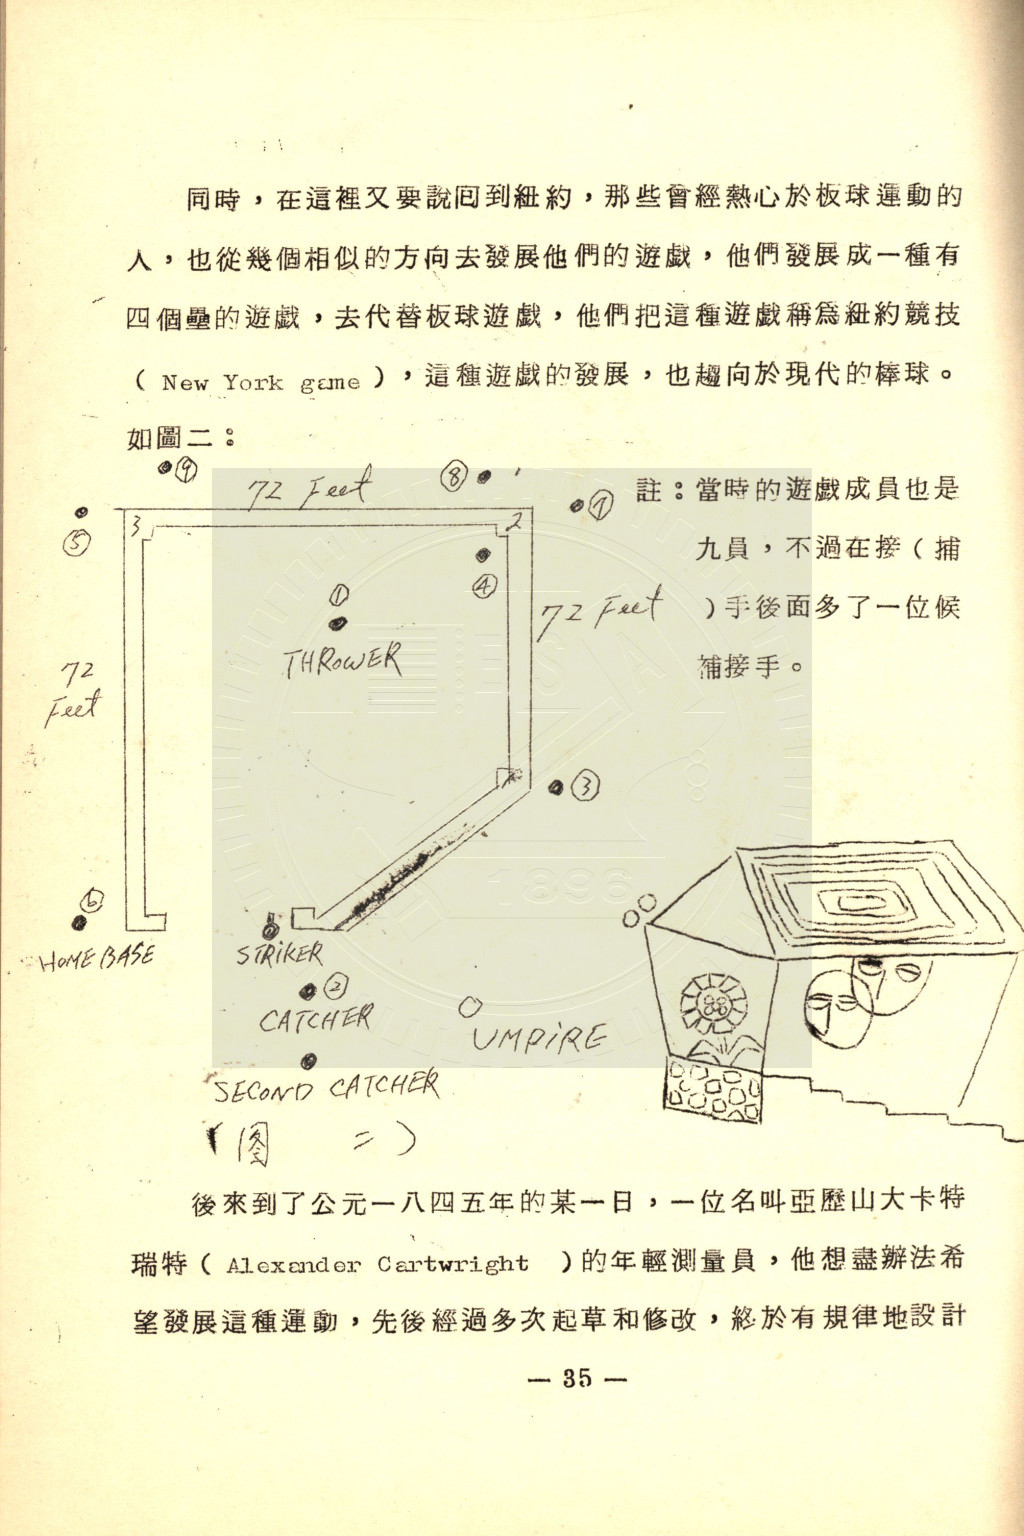 同時，在這裡又要說回到紐約，那些曾經熱心於板球運動的
人，也從幾個相似的方向去發展他們的遊戲，他們發展成一種有
四個壘的遊戲，去代替板球遊戲，他們把這種遊戲稱爲紐約競技
（ New York game ），這種遊戲的發展，也趨向於現代的棒球。
如圖二：
⑨
72 Feet
⑧
⑦
⑤
3
2
④
①
THROWER
72 Feet
72
Feet
註：當時的遊戲成員也是
九員，不過在接（捕
）手後面多了一位候
補接手。
③
⑥
HOME BASE
STRIKER
②
CATCHER
UMPIRE
SECOND CATCHER
1896
（图 二）
後來到了公元一八四五年的某一日，一位名叫亞歷山大卡特
瑞特（ Alexander Cartwright ）的年輕測量員，他想盡辦法希
望發展這種運動，先後經過多次起草和修改，終於有規律地設計
— 35 —